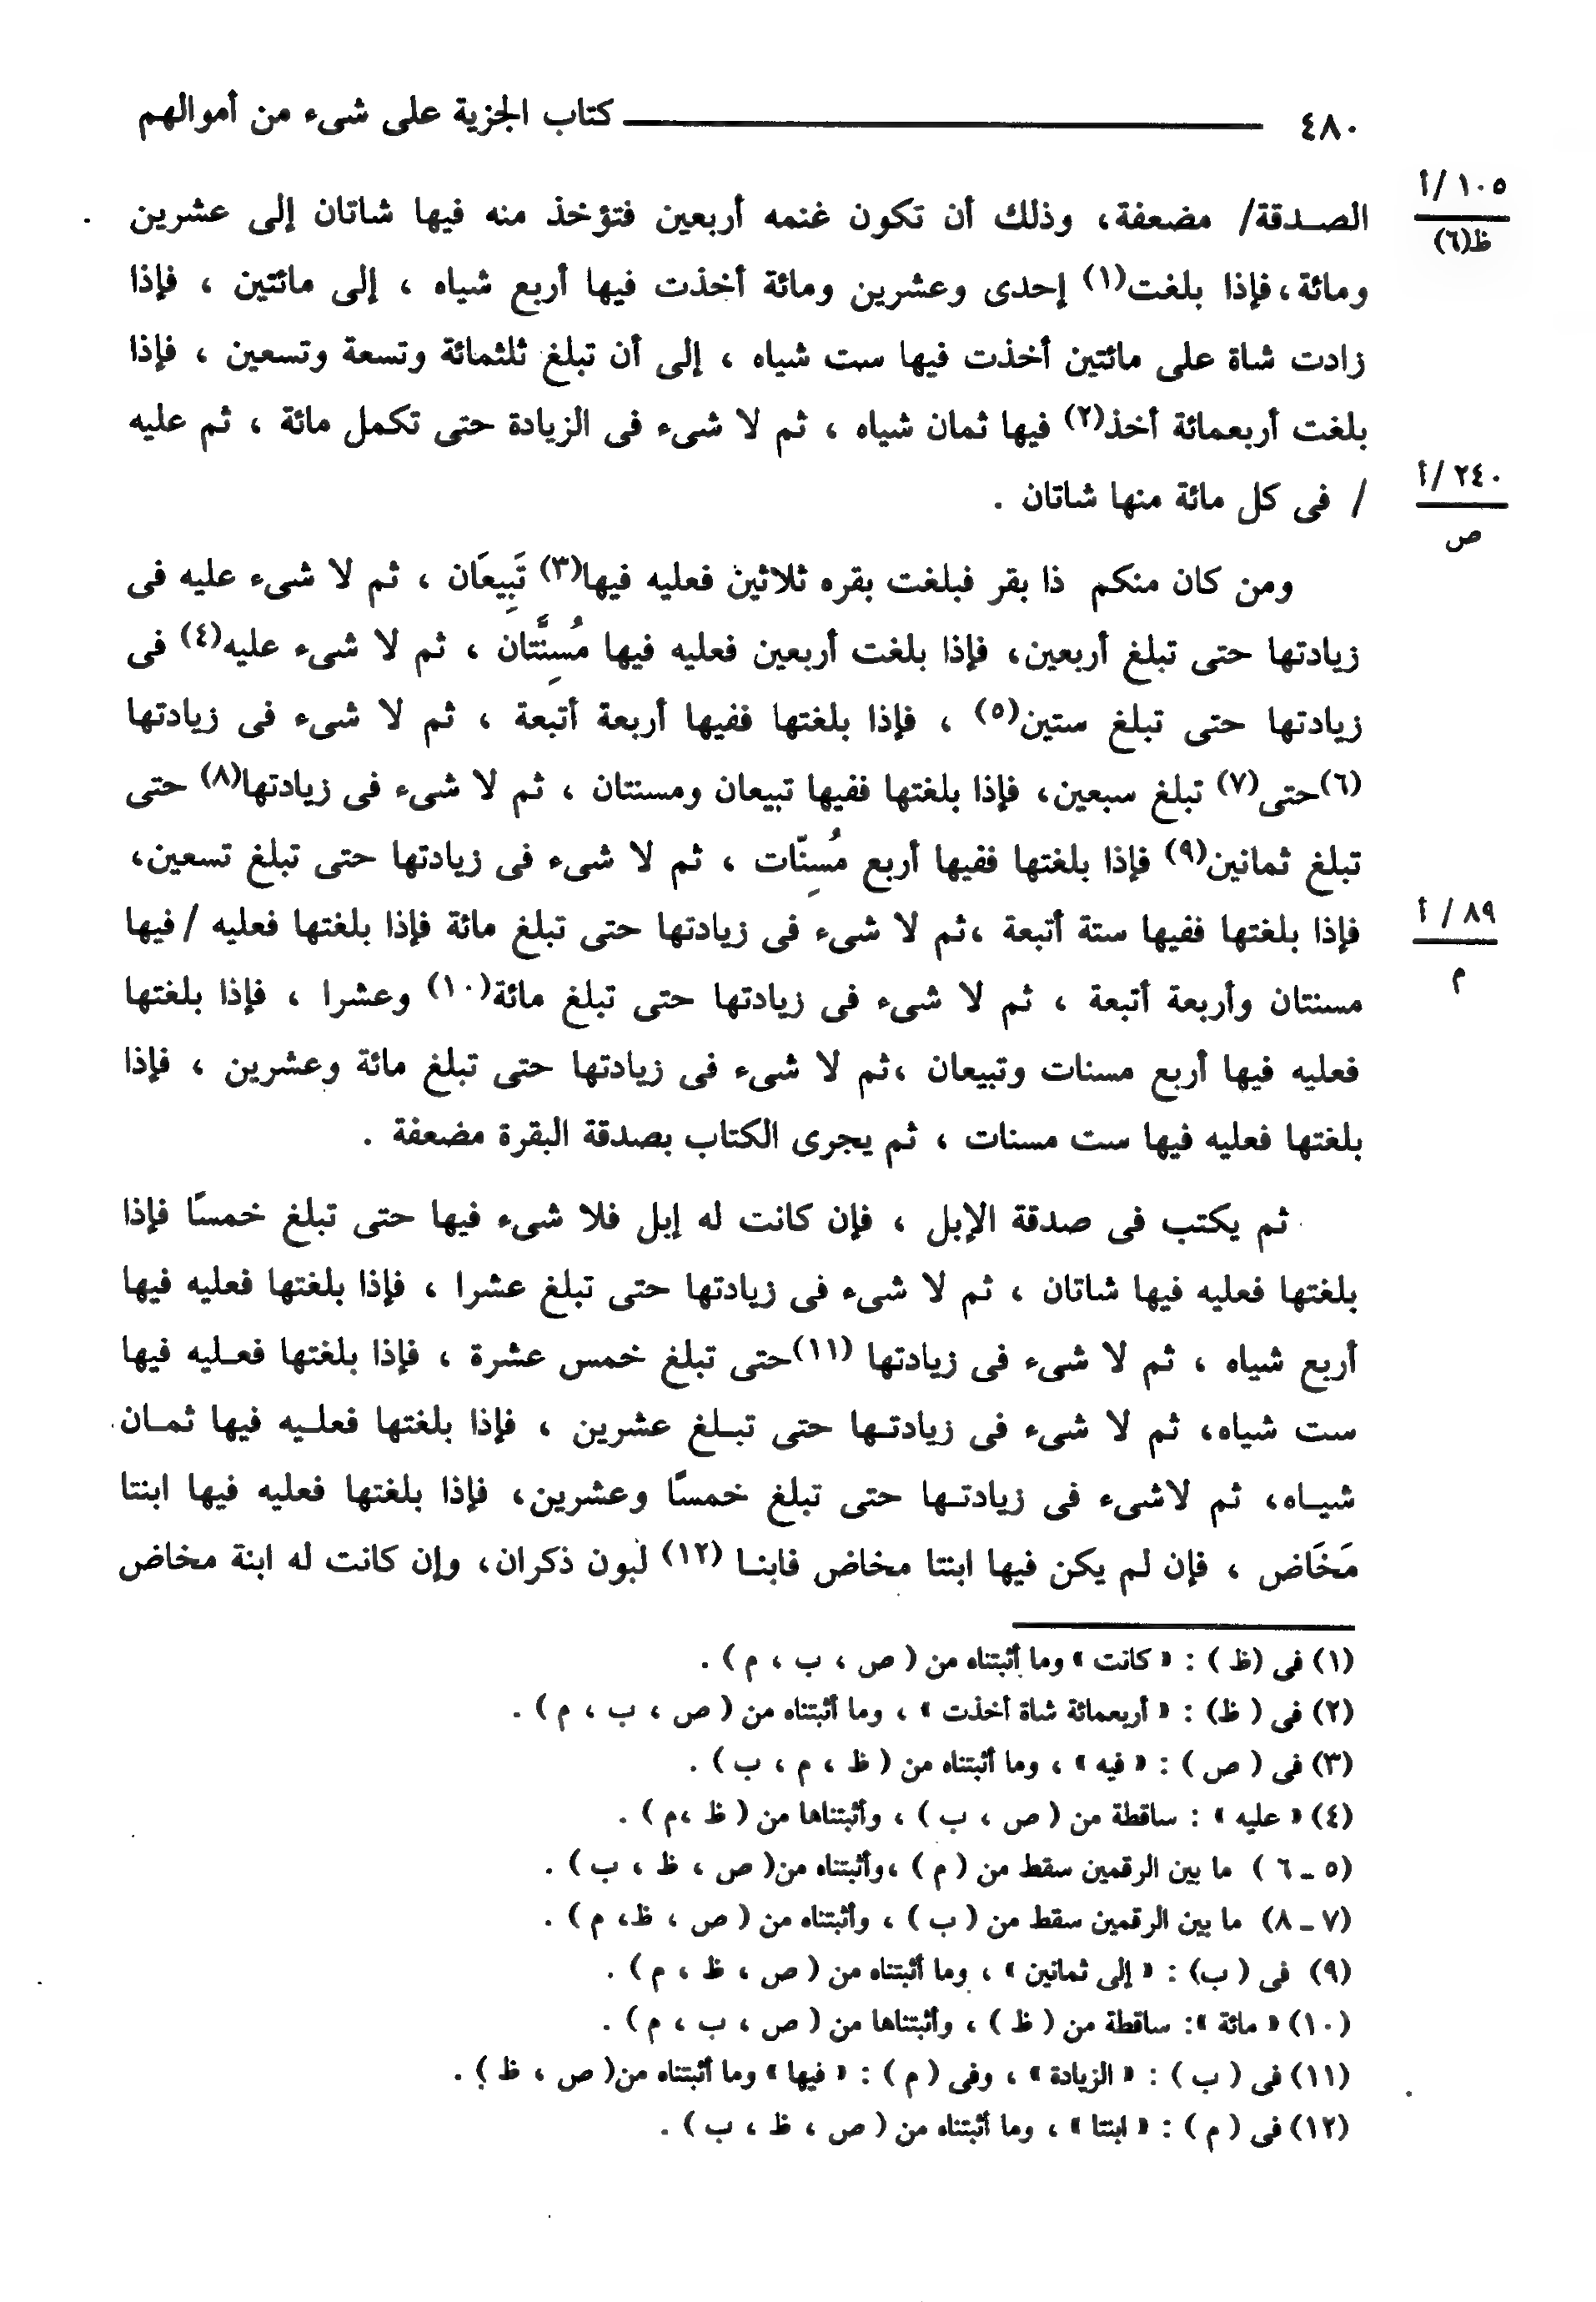 ٤٨٠ كتاب الجزية على شىء من أموالهم
١٠٥ /أ
ظ(٦)
الصـدقة/ مضعفة، وذلك أن تكون غنمه أربعين فتؤخذ منه فيها شاتان إلى عشرين
ومائة،فإذا بلغت(١) إحدى وعشرين ومائة أخذت فيها أربع شياه ، إلى مائتين ، فإذا
زادت شاة على مائتين أخذت فيها ست شياه ، إلى أن تبلغ ثلثمائة وتسعة وتسعين ، فإذا
بلغت أربعمائة أخذ(٢) فيها ثمان شياه ، ثم لا شىء فى الزيادة حتى تكمل مائة ، ثم عليه
٢٤٠ /أ
ص
/ فى كل مائة منها شاتان .
ومن كان منكم ذا بقر فبلغت بقره ثلاثين فعليه فيها(٣) تَبِيعَان ، ثم لا شىء عليه فى
زيادتها حتى تبلغ أربعين، فإذا بلغت أربعين فعليه فيها مُسِنَّتان ، ثم لا شىء عليه(٤) فى
زيادتها حتى تبلغ ستين(٥) ، فإذا بلغتها ففيها أربعة أتبعة ، ثم لا شىء فى زيادتها
(٦)حتى(٧) تبلغ سبعين، فإذا بلغتها ففيها تبيعان ومسنتان ، ثم لا شىء فى زيادتها(٨) حتى
تبلغ ثمانين(٩) فإذا بلغتها ففيها أربع مُسِنّات ، ثم لا شىء فى زيادتها حتى تبلغ تسعين،
٨٩ / أ
م
فإذا بلغتها ففيها ستة أتبعة ،ثم لا شىء فى زيادتها حتى تبلغ مائة فإذا بلغتها فعليه /فيها
مسنتان وأربعة أتبعة ، ثم لا شىء فى زيادتها حتى تبلغ مائة(١٠) وعشرا ، فإذا بلغتها
فعليه فيها أربع مسنات وتبيعان ،ثم لا شىء فى زيادتها حتى تبلغ مائة وعشرين ، فإذا
بلغتها فعليه فيها ست مسنات ، ثم يجرى الكتاب بصدقة البقرة مضعفة .
ثم يكتب فى صدقة الإبل ، فإن كانت له إبل فلا شىء فيها حتى تبلغ خمسًا فإذا
بلغتها فعليه فيها شاتان ، ثم لا شىء فى زيادتها حتى تبلغ عشرا ، فإذا بلغتها فعليه فيها
أربع شياه ، ثم لا شىء فى زيادتها (١١)حتى تبلغ خمس عشرة ، فإذا بلغتها فعـليه فيها
ست شياه، ثم لا شىء فى زيادتـها حتى تبـلغ عشرين ، فإذا بلغتها فعلـيه فيها ثمـان
شيـاه، ثم لاشىء فى زيادتـها حتى تبلغ خمسًا وعشرين، فإذا بلغتها فعليه فيها ابنتا
مَخَاض ، فإن لم يكن فيها ابنتا مخاض فابنـا (١٢) لبون ذكران، وإن كانت له ابنة مخاض
(١) فى (ظ ) : « كانت » وما أثبتناه من ( ص ، ب ، م ) .
(٢) فى ( ظ) : « أربعمائة شاة أخذت » ، وما أثبتناه من ( ص ، ب ، م ) .
(٣) فى ( ص ) : « فيه » ، وما أثبتناه من ( ظ ، م ، ب ) .
(٤) « عليه » : ساقطة من ( ص ، ب ) ، وأثبتناها من ( ظ ،م ) .
(٥ ـ ٦ ) ما بين الرقمين سقط من ( م ) ،وأثبتناه من( ص ، ظ ، ب ) .
(٧ ـ ٨) ما بين الرقمين سقط من ( ب ) ، وأثبتناه من ( ص ، ظ، م ) .
(٩) فى ( ب) : « إلى ثمانين » ، وما أثبتناه من ( ص ، ظ ، م ) .
(١٠) « مائة »: ساقطة من ( ظ ) ، وأثبتناها من ( ص ، ب ، م ) .
(١١) فى ( ب ) : « الزيادة » ، وفى ( م ) : « فيها » وما أثبتناه من( ص ، ظ ) .
(١٢) فى ( م ) : « ابنتا » ، وما أثبتناه من ( ص ، ظ ، ب ) .